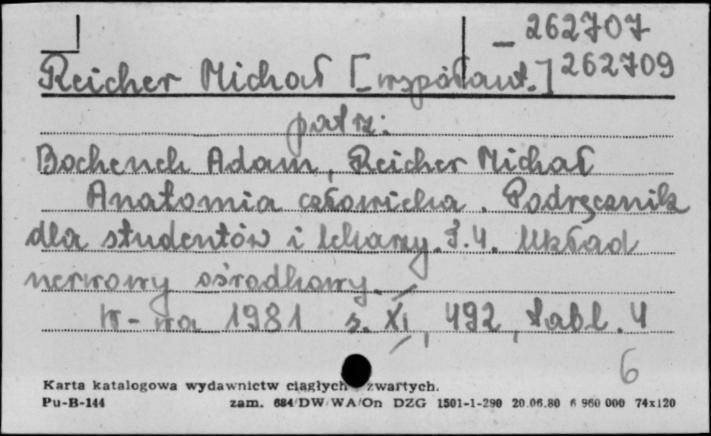 262707
Reicher Michał [współaut.] 262709
patrz:
Bochenek Adam, Reicher Michał
Anatomia człowieka. Podręcznik
dla studentów i lekarzy. T.4. Układ
nerwowy ośrodkowy.
W-wa 1981 s. XI, 492, tabl. 4
6
Karta katalogowa wydawnictw ciągłych zwartych.
Pu-B-144 zam. 684/DW/WA/On DZG 1501-1-290 20.06.80 6 960 000 74x120